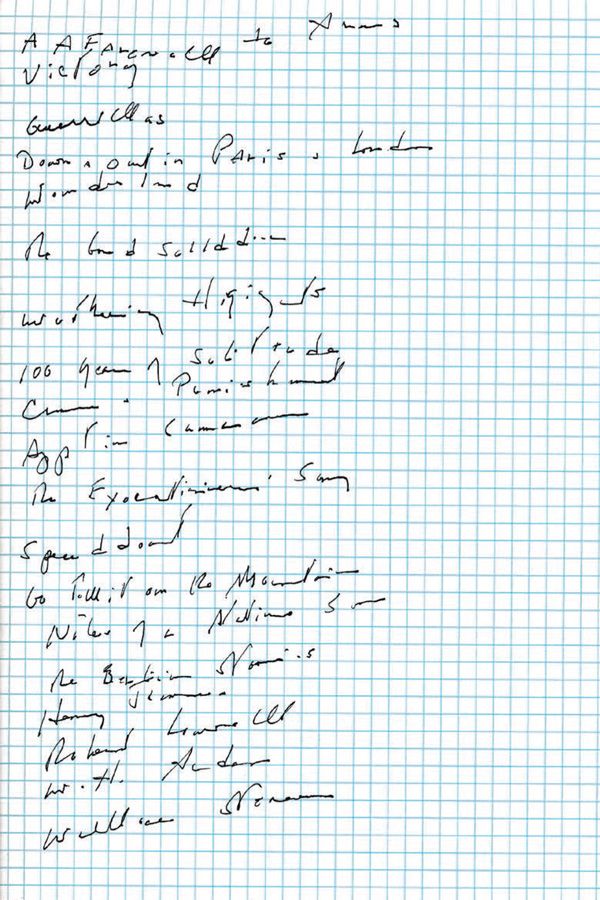 A A Farewell to Arms
Victory
Guerrillas
Down & Out in Paris & London
Wonderland
The Good Soldier
Wuthering Heights
100 Years of Solitude
Crime & Punishment
App in Cameroon
The Executioner's Song
Speedboat
Go Tell it on the Mountain
Notes of a Native Son
The Berlin Stories
Henry James
Robert Lowell
W. H. Auden
Wallace Stevens